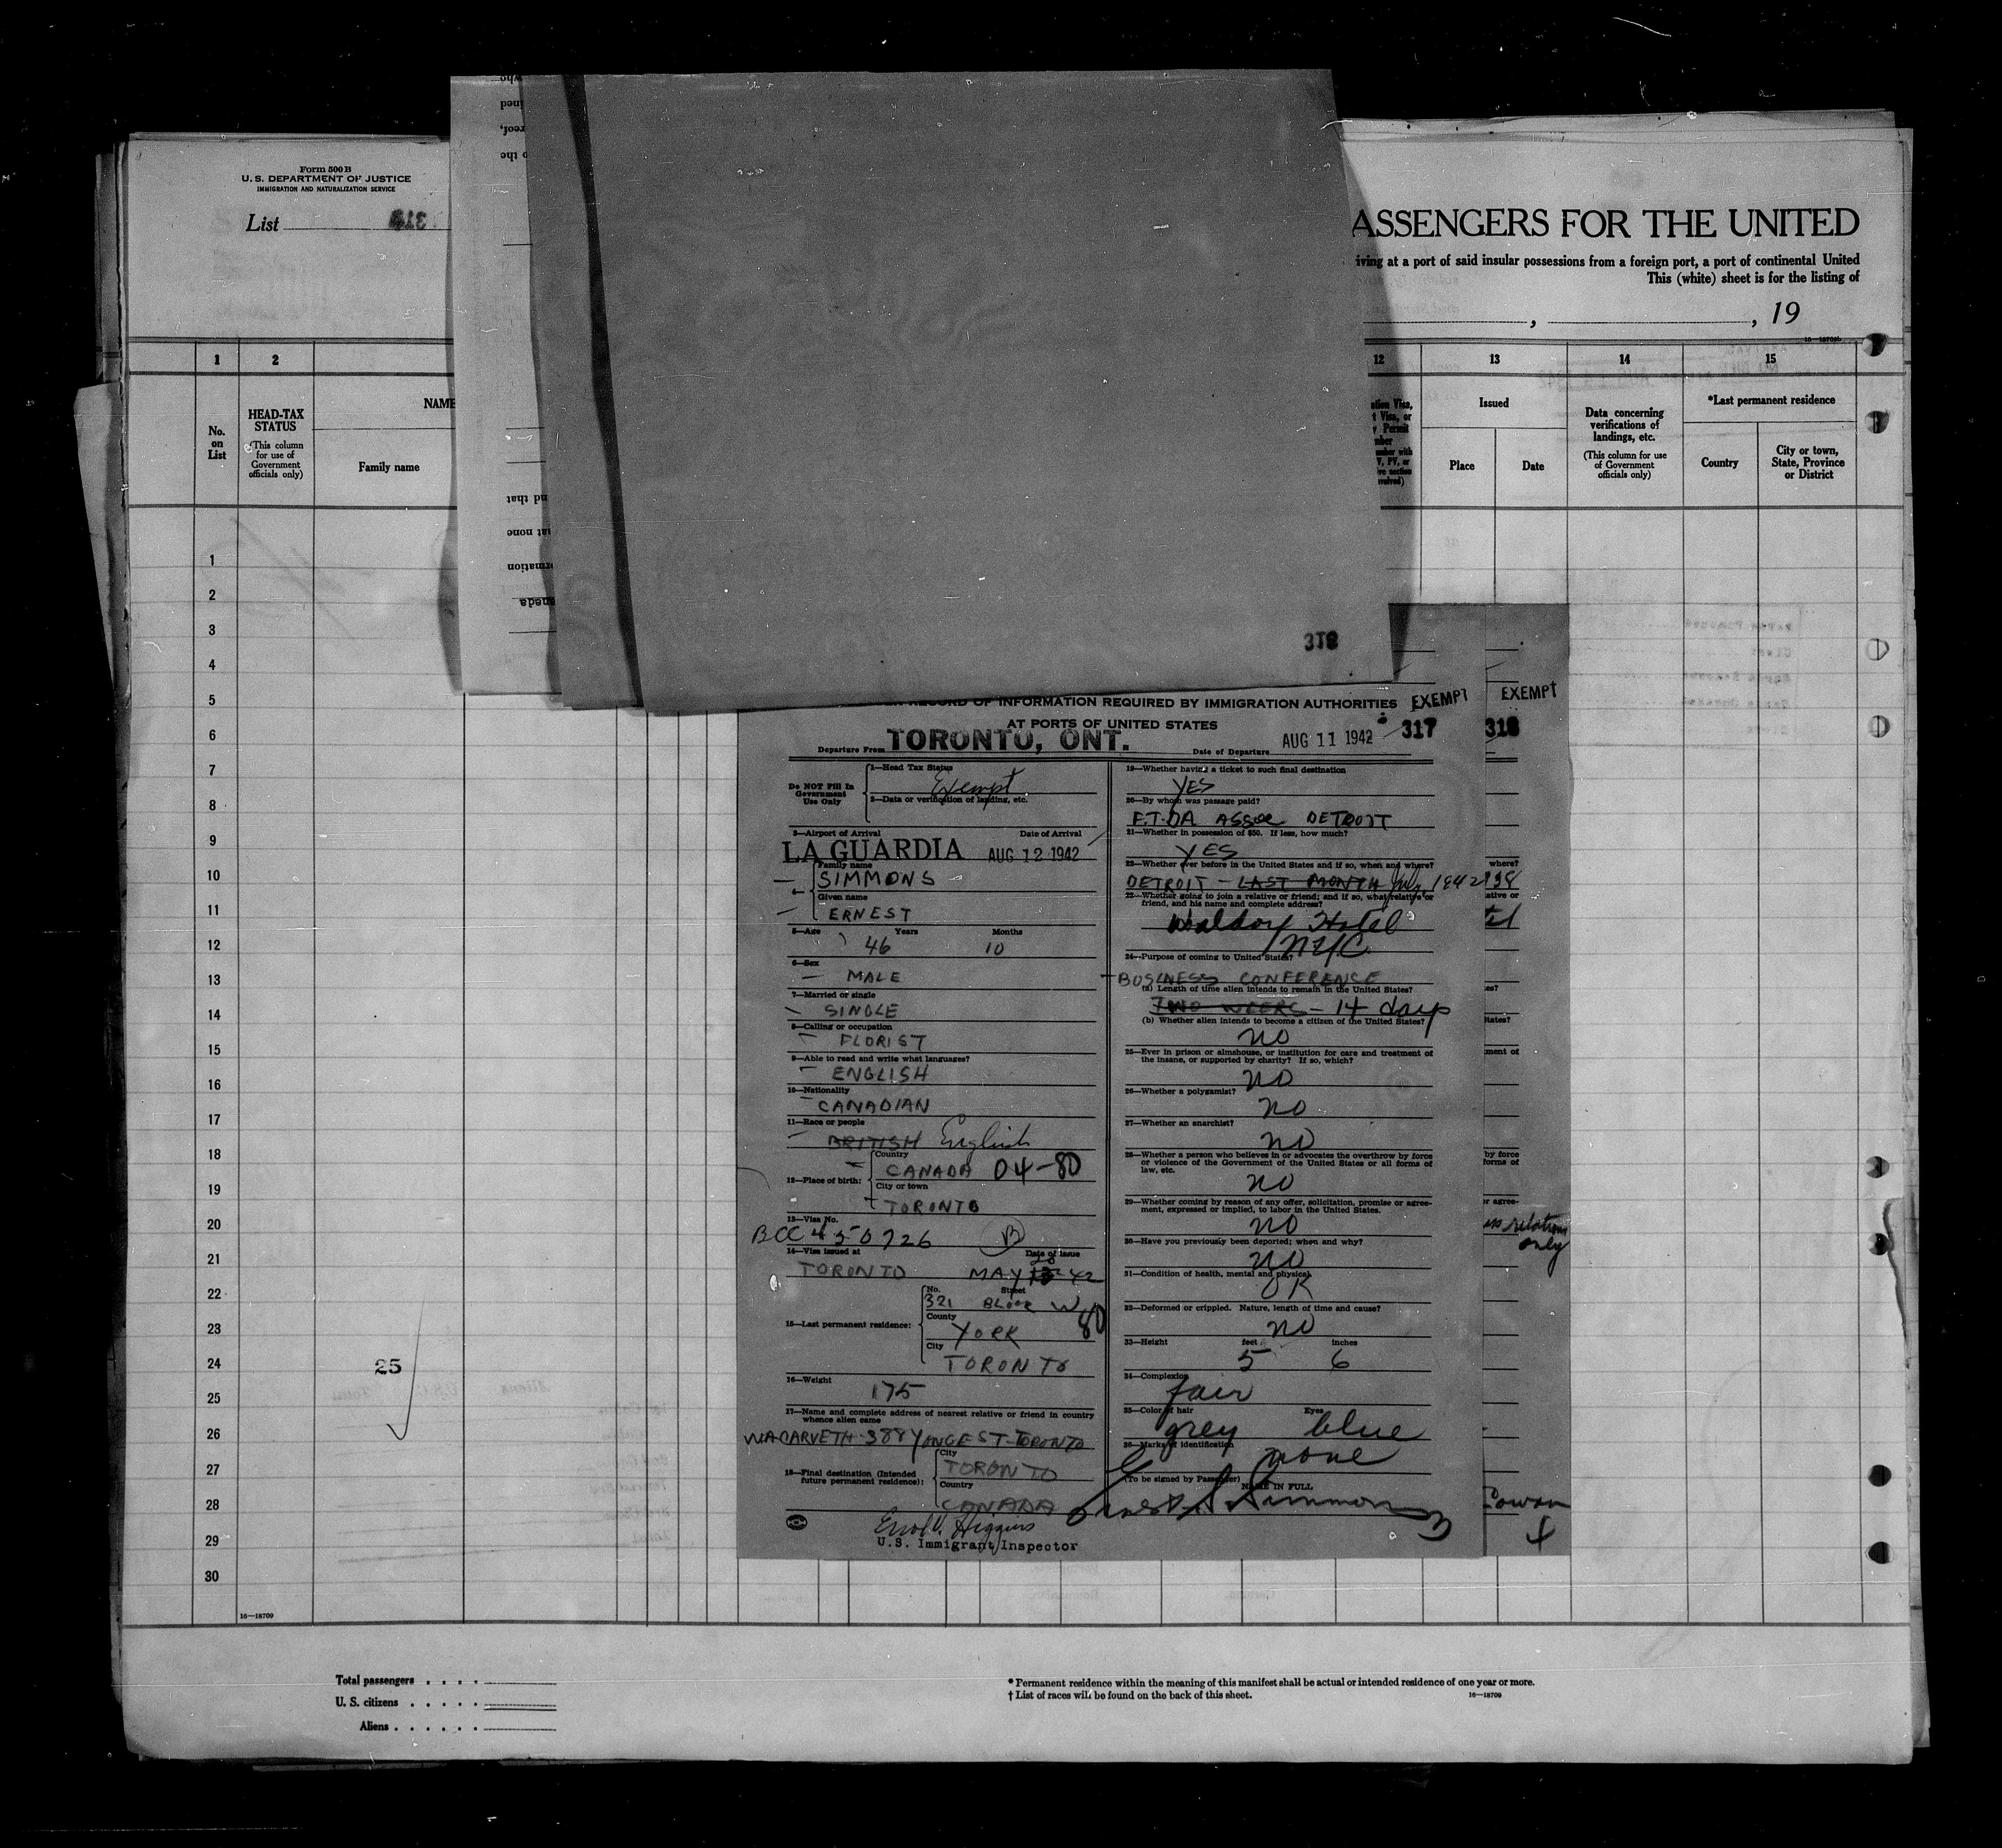 Form 500 B
U. S. DEPARTMENT OF JUSTICE
IMMIGRATION AND NATURALIZATION SERVICE
List
ASSENGERS FOR THE UNITED
iving at a port of said insular possessions from a foreign port, a port of continental United
This (white) sheet is for the listing of
, , 19
16—18709
1 2 12 13 14 15
No. on List
HEAD-TAX STATUS
(This column for use of Government officials only)
NAME
Family name
Issued
Place Date
Data concerning verifications of landings, etc.
(This column for use of Government officials only)
*Last permanent residence
Country
City or town, State, Province or District
1
2
3
4
5
6
7
8
9
10
11
12
13
14
15
16
17
18
19
20
21
22
23
24
25
26
27
28
29
30
25
16—18709
318
RECORD OF INFORMATION REQUIRED BY IMMIGRATION AUTHORITIES
AT PORTS OF UNITED STATES
EXEMPT
317
EXEMPT
318
Departure From TORONTO, ONT. Date of Departure AUG 11 1942
Do NOT Fill In Government Use Only
1—Head Tax Status
Exempt
2—Data or verification of landing, etc.
3—Airport of Arrival Date of Arrival
LA GUARDIA AUG 12 1942
4— Family name
SIMMONS
Given name
ERNEST
5—Age Years Months
46 10
6—Sex
MALE
7—Married or single
SINGLE
8—Calling or occupation
FLORIST
9—Able to read and write what languages?
ENGLISH
10—Nationality
CANADIAN
11—Race or people
BRITISH English
12—Place of birth: Country
CANADA 04-80
City or town
TORONTO
13—Visa No.
BCC 450726 B
14—Visa issued at Date of issue
TORONTO MAY 42
15—Last permanent residence: No. Street
321 BLOOR W 80
County
YORK
City
TORONTO
16—Weight
175
17—Name and complete address of nearest relative or friend in country whence alien came
WACARVETH-388 YONGE ST-TORONTO
18—Final destination (Intended future permanent residence): City
TORONTO
Country
CANADA
Higgins
U.S. Immigrant Inspector
19—Whether having a ticket to such final destination
YES
20—By whom was passage paid?
F.T.DA ASSOC DETROIT
21—Whether in possession of $50. If less, how much?
YES
22—Whether ever before in the United States and if so, when and where?
DETROIT - LAST MONTH July, 1942
22—Whether going to join a relative or friend; and if so, what relative or friend, and his name and complete address?
Waldorf Hotel
NYC
24—Purpose of coming to United States?
BUSINESS CONFERENCE
(a) Length of time alien intends to remain in the United States?
TWO WEEKS - 14 days
(b) Whether alien intends to become a citizen of the United States?
no
25—Ever in prison or almshouse, or institution for care and treatment of the insane, or supported by charity? If so, which?
no
26—Whether a polygamist?
no
27—Whether an anarchist?
no
28—Whether a person who believes in or advocates the overthrow by force or violence of the Government of the United States or all forms of law, etc.
no
29—Whether coming by reason of any offer, solicitation, promise or agreement, expressed or implied, to labor in the United States.
no
30—Have you previously been deported; when and why?
no
31—Condition of health, mental and physical
OK
32—Deformed or crippled. Nature, length of time and cause?
no
33—Height feet inches
5 6
34—Complexion
fair
35—Color of hair Eyes
grey blue
36—Marks of identification
none
(To be signed by Passenger) NAME IN FULL
Ernest S Simmons
where?
ative or
es?
States?
ment of
by force
forms of
or agree-
relation
only
Cowan
Total passengers . . . .
U. S. citizens . . . . .
Aliens . . . . . .
* Permanent residence within the meaning of this manifest shall be actual or intended residence of one year or more.
† List of races will be found on the back of this sheet.
16—18709